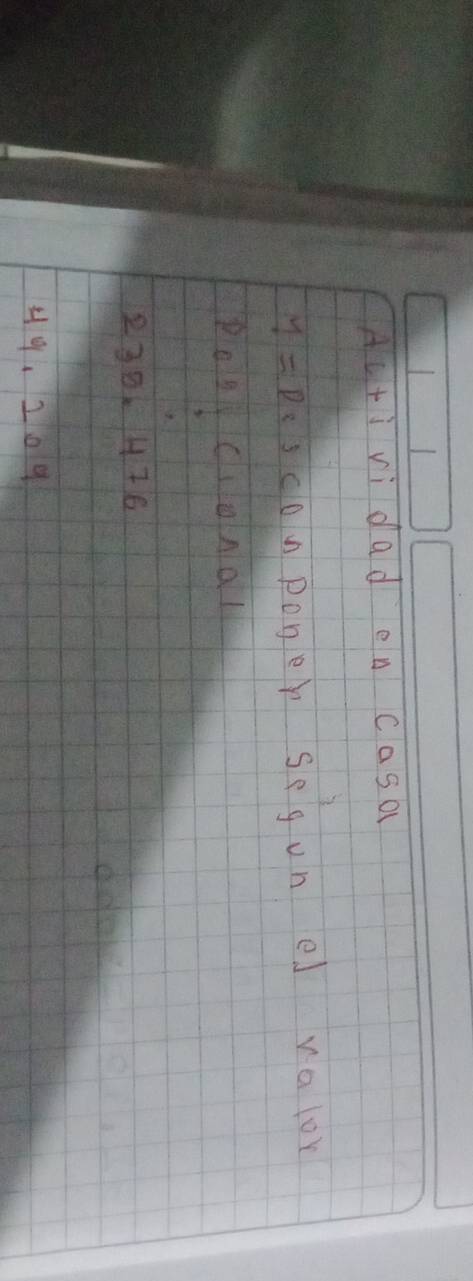 Actividad en casa
1=Descon poner según el valor
Posicional
238.476
49.209